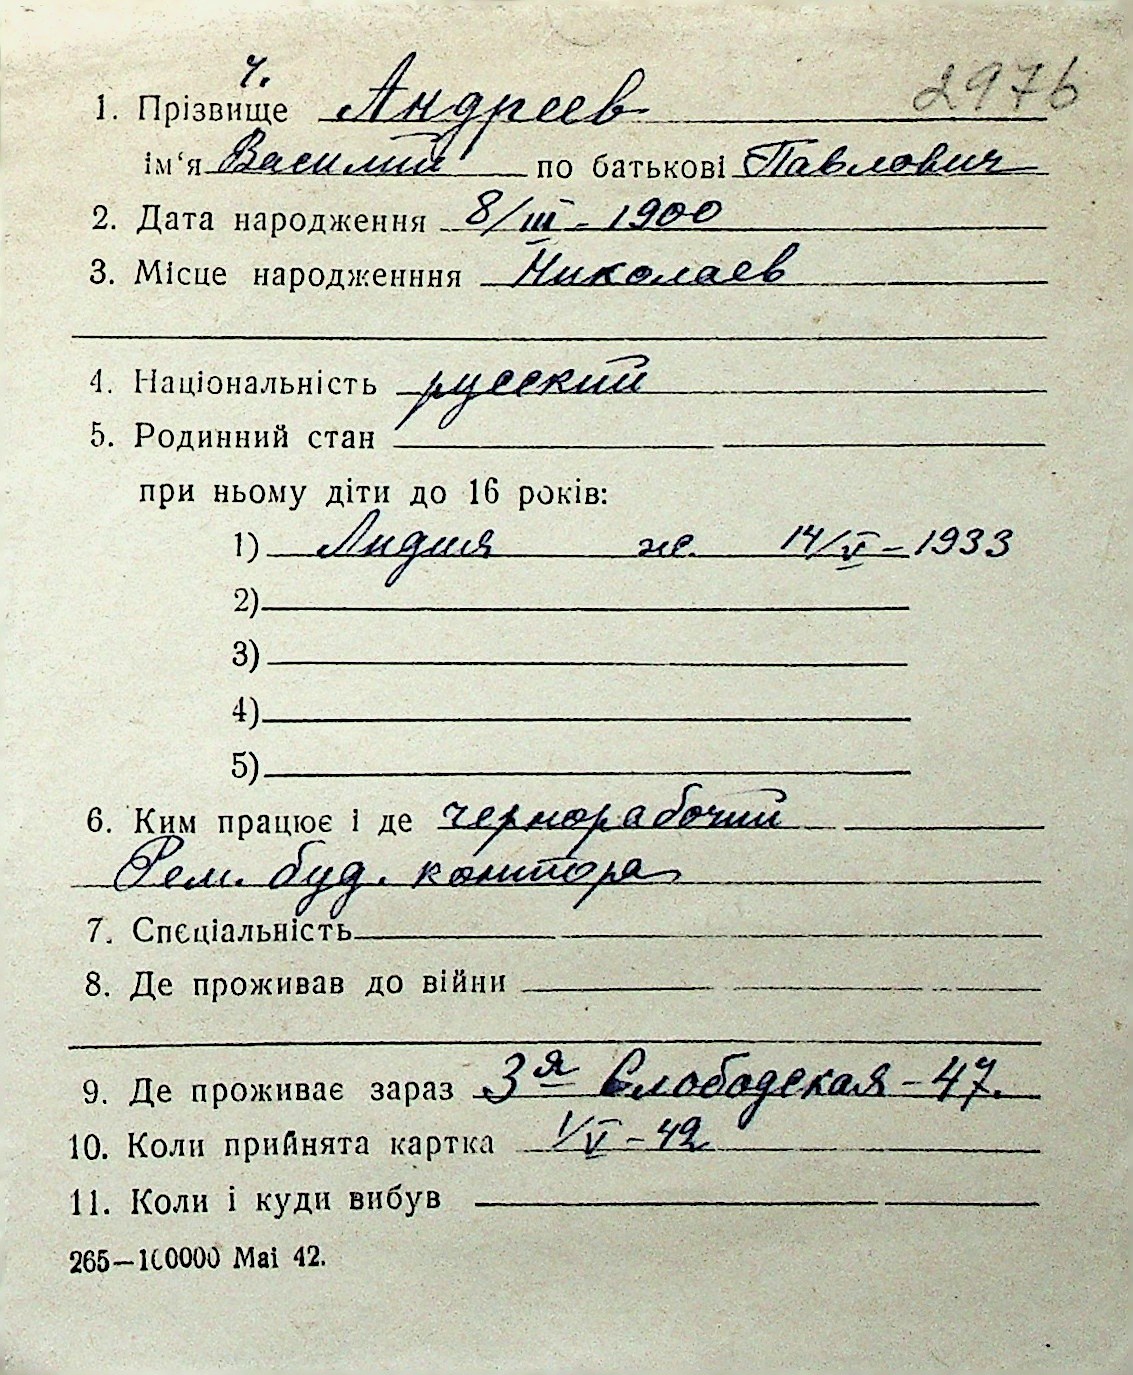 ч.
1. Прізвище Андреев 2976
ім‘я Василий по батькові Павлович
2. Дата народження 8/III - 1900
3. Місце народженння Николаев
4. Національність русский
5. Родинний стан
при ньому діти до 16 років:
1) Лидия ж. 14/V - 1933
2)
3)
4)
5)
6. Ким працює і де чернорабочий
Рем. буд. контора
7. Спєціальність
8. Де проживав до війни
9. Де проживає зараз 3я Слободская - 47.
10. Коли прийнята картка 1/V - 42
11. Коли і куди вибув
265—100000 Маі 42.